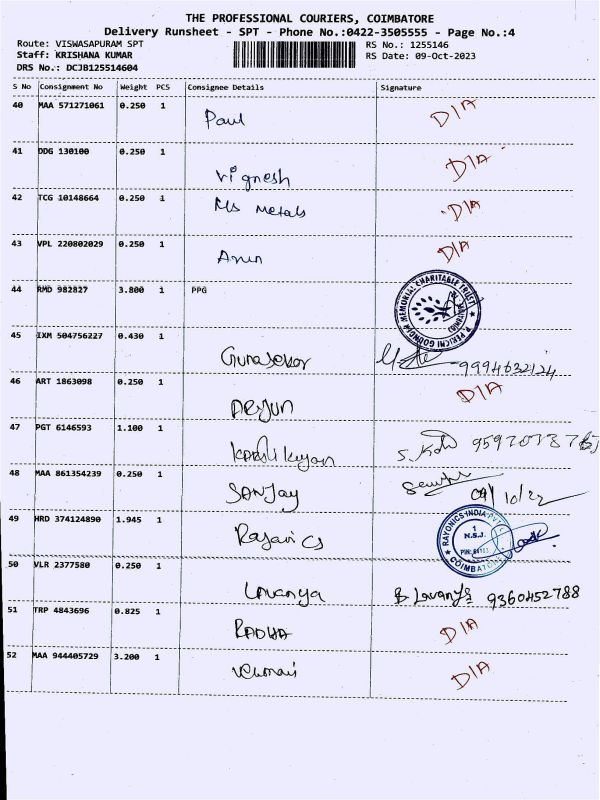 THE PROFESSIONAL COURIERS, COIMBATORE
Delivery Runsheet - SPT - Phone No.:0422-3505555 - Page No.:4
Route: VISWASAPURAM SPT RS No.: 1255146
Staff: KRISHANA KUMAR RS Date: 09-Oct-2023
DRS No.: DCJB125514604
S No Consignment No Weight PCS Consignee Details Signature
40 MAA 571271061 0.250 1 Paul D/A
41 DDG 130100 0.250 1 Vignesh D/A
42 TCG 10148664 0.250 1 Ms Metals D/A
43 VPL 220802029 0.250 1 Arun D/A
44 RMD 982827 3.800 1 PPG
MEMORIAL CHARITABLE TRUST
45 IXM 504756227 0.430 1 Gunasekar 9994632124
46 ART 1863098 0.250 1 Arjun D/A
47 PGT 6146593 1.100 1
48 MAA 861354239 0.250 1 SANJAY
49 HRD 374124890 1.945 1
RAYONICS INDIA PVT
N.S.J.
COIMBATORE
50 VLR 2377580 0.250 1 Lavanya B Lavanya 9360452788
51 TRP 4843696 0.825 1 RADHA D/A
52 MAA 944405729 3.200 1 D/A